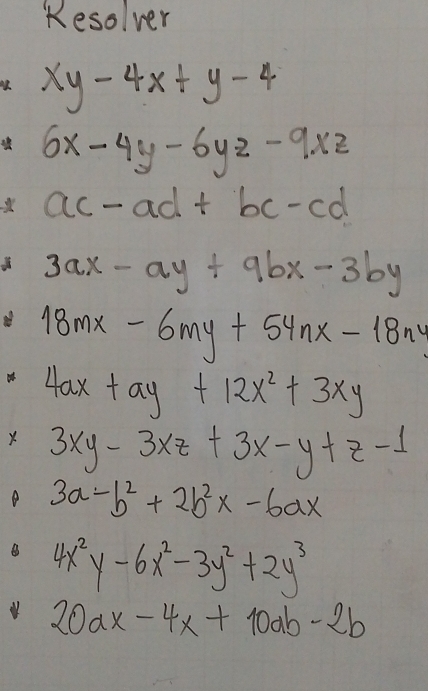 Resolver
* xy - 4x + y - 4
* 6x - 4y - 6yz - 9xz
* ac - ad + bc - cd
* 3ax - ay + 9bx - 3by
* 18mx - 6my + 54nx - 18ny
* 4ax + ay + 12x² + 3xy
x 3xy - 3xz + 3x - y + z - 1
3a - b² + 2b²x - 6ax
4x²y - 6x² - 3y² + 2y³
20ax - 4x + 10ab - 2b